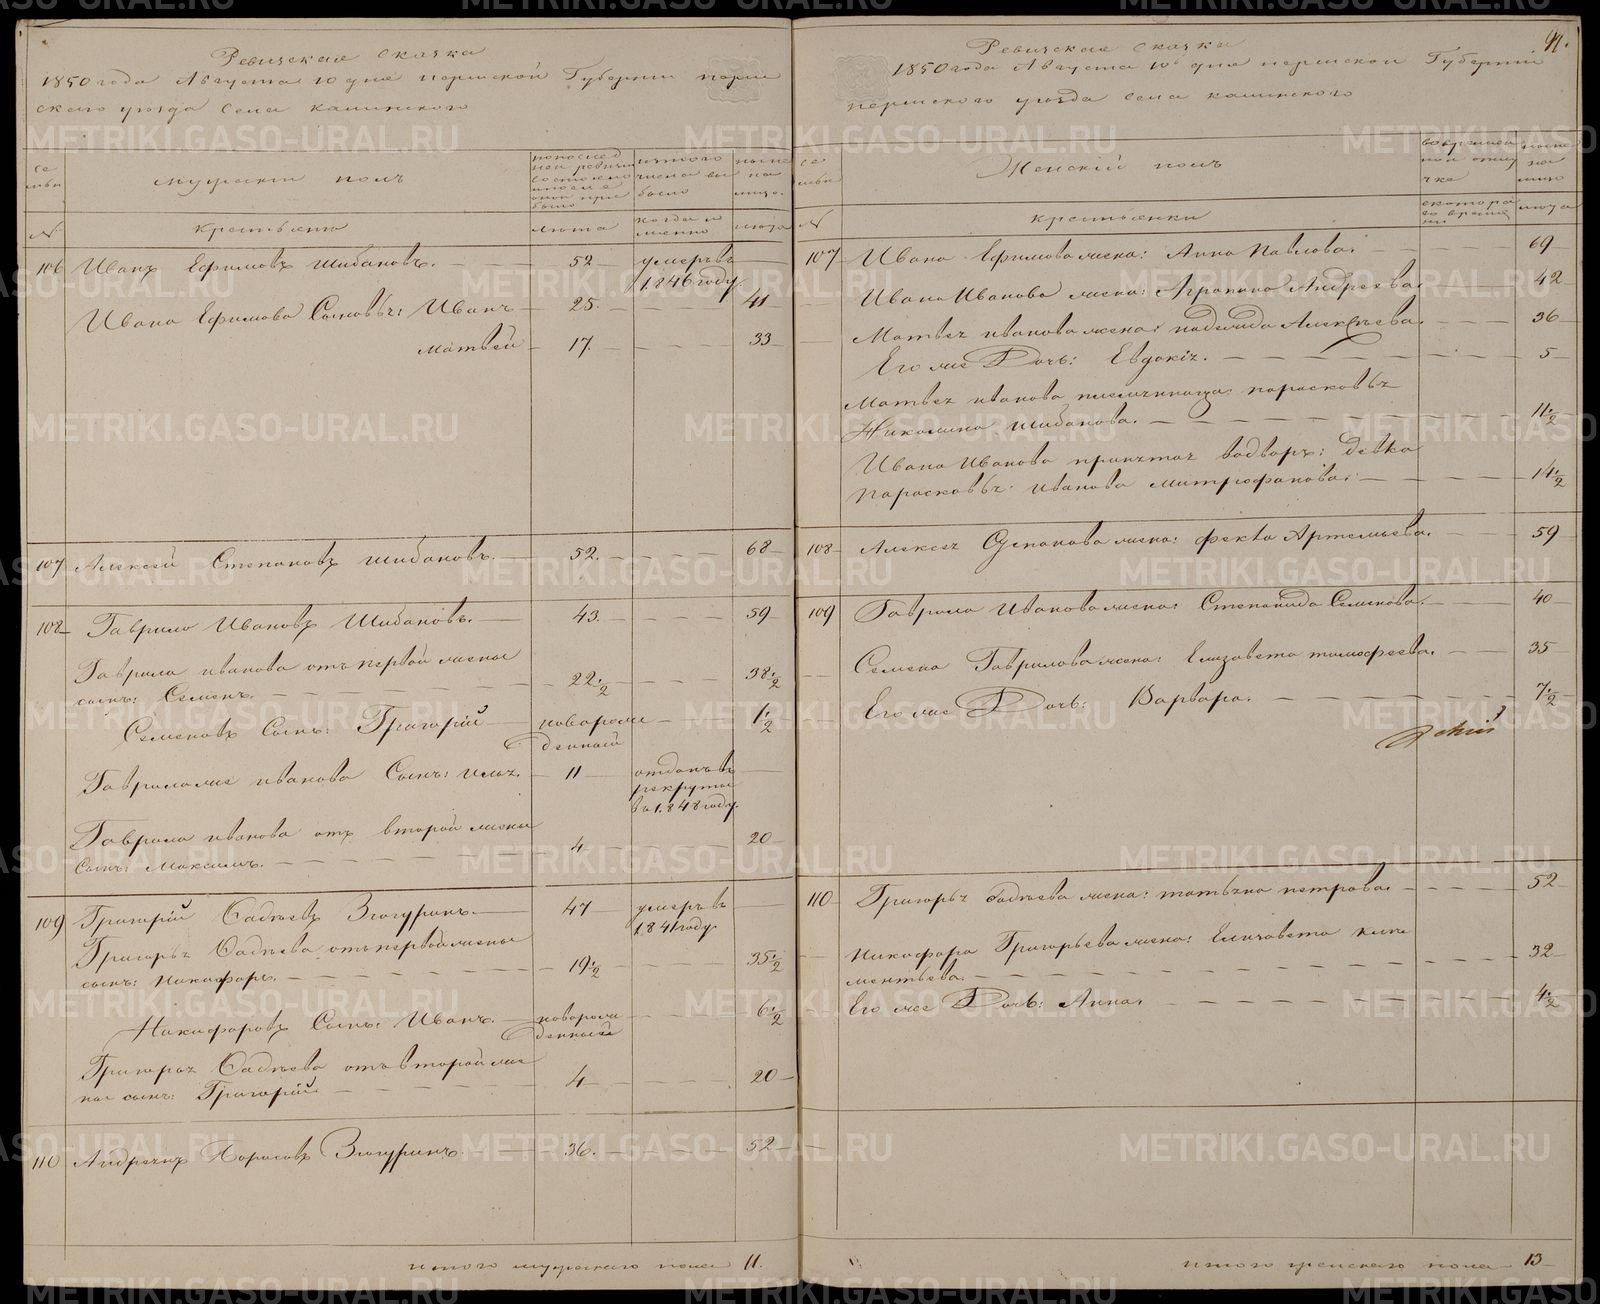 Ревизская сказка
1850 года Августа 10 дня пермской Губернии перм
скаго уезда села калинскаго
се
мьи
мужеский полъ
по послед
ней ревизии
состояло
и после
оной при
было
из того
числа вы
было
ныне
на
лицо.
№
крестьяне
лѣта
когда и
менно
лѣта
106 Иванъ Ефимовъ Шибановъ. 52 умеръ въ
1846 году
Ивана Ефимова Сыновья: Иванъ 25. 41
Матвей 17. 33
107 Алексей Степановъ Шибановъ. 52. 68
108 Гаврило Ивановъ Шибановъ. 43. 59
Гаврила иванова отъ первой жены
сынъ: Семенъ. 22 1/2 38 1/2
Семеновъ Сынъ: Григорiй новорож 1 1/2
денный
Гаврила же иванова Сынъ: илья. 11 отданъ въ
рекруты
в 1848 году.
Гаврила иванова отъ второй жены
Сынъ: Максимъ. 4 20
109 Григорiй Фадѣевъ Згогуринъ. 47 умеръ въ
1841 году
Григорья Фадѣева отъ первой жены
сынъ: Никифоръ. 19 1/2 35 1/2
Никифоровъ Сынъ: Иванъ. новорож 6 1/2
денный
Григорья Фадѣева отъ второй же
ны сынъ: Григорiй. 4 20
110 36. 52
итого мужескаго пола 11.
91.
Ревизская сказка
1850 года Августа 10 дня пермской Губернии
пермскаго уезда села калинскаго
се
мьи
Женскiй полъ
во времен
ной отлу
чке
ныне
на
лицо
№
крестьянки
с котора
го време
ни
лѣта
107 Ивана Ефимова жена: Анна Павлова. 69
Ивана Иванова жена: Агрипина Андреева. 42
Матвея иванова жена: надежда Алексѣева. 36
Его же Дочь: Евдокiя. 5
Матвея иванова племянница парасковья
Николаева шибанова. 11 1/2
Ивана Иванова принятая во дворъ: девка
парасковья иванова митрофанова. 14 1/2
108 Алексея Степанова жена: фекла Артемьева. 59
109 Гаврила Иванова жена: Степанида Семенова. 40
Семена Гаврилова жена: Елизавета тимофеева. 35
Его же Дочь: Варвара. 7 1/2
110 Григорья Фадѣева жена: татьяна петрова. 52
Никифора Григорьева жена: Елизавета кли
ментьева. 32
Его же Дочь: Анна. 4 1/2
итого женскаго пола 13
METRIKI.GASO-URAL.RU